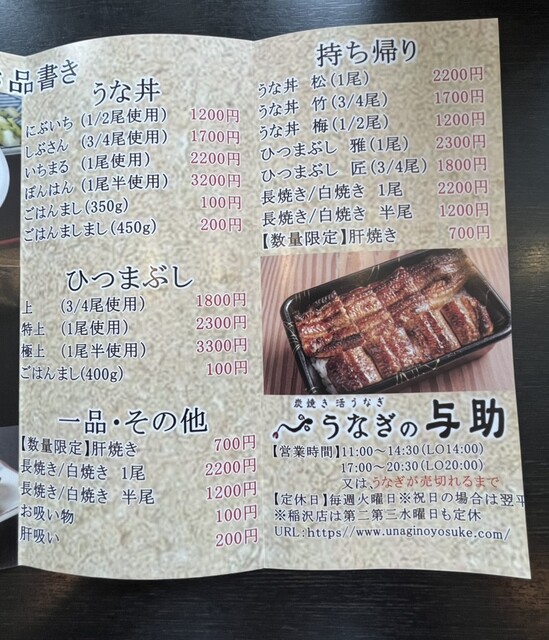 品書き
うな丼
にぶいち (1/2尾使用) 1200円
しぶさん (3/4尾使用) 1700円
いちまる (1尾使用) 2200円
ぼんはん (1尾半使用) 3200円
ごはんまし(350g) 100円
ごはんましまし(450g) 200円
ひつまぶし
上 (3/4尾使用) 1800円
特上 (1尾使用) 2300円
極上 (1尾半使用) 3300円
ごはんまし(400g) 100円
一品・その他
【数量限定】肝焼き 700円
長焼き/白焼き 1尾 2200円
長焼き/白焼き 半尾 1200円
お吸い物 100円
肝吸い 200円
持ち帰り
うな丼 松(1尾) 2200円
うな丼 竹(3/4尾) 1700円
うな丼 梅(1/2尾) 1200円
ひつまぶし 雅(1尾) 2300円
ひつまぶし 匠(3/4尾) 1800円
長焼き/白焼き 1尾 2200円
長焼き/白焼き 半尾 1200円
【数量限定】肝焼き 700円
炭焼き活うなぎ
うなぎの与助
【営業時間】11:00～14:30(LO14:00)
17:00～20:30(LO20:00)
又は、うなぎが売切れるまで
【定休日】毎週火曜日※祝日の場合は翌平
※稲沢店は第二第三水曜日も定休
URL:https//www.unaginoyosuke.com/